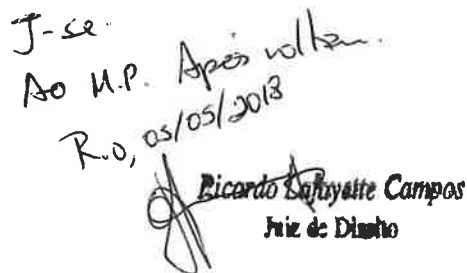 J-se.
Ao M.P. Após voltem.
R.O, 03/05/2013
Ricardo Lafayette Campos
Juiz de Direito